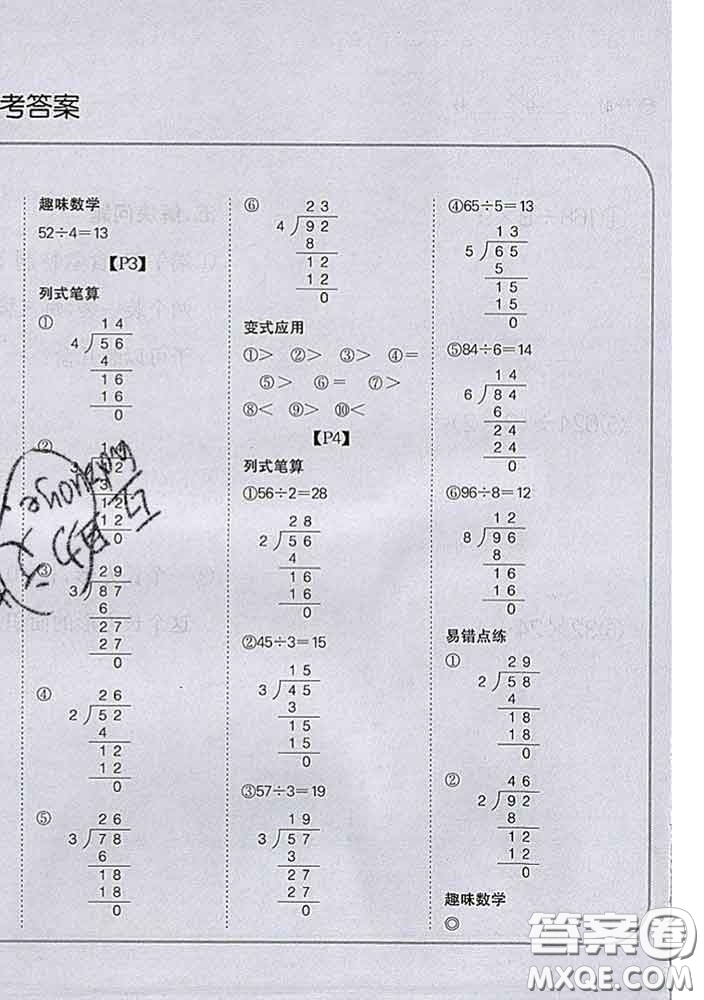 考答案
趣味数学
52÷4=13
【P3】
列式笔算
①
1 4
4 5 6
4
1 6
1 6
0
②
1 2
1 2
0
③
2 9
3 8 7
6
2 7
2 7
0
④
2 6
2 5 2
4
1 2
1 2
0
⑤
2 6
3 7 8
6
1 8
1 8
0
⑥
2 3
4 9 2
8
1 2
1 2
0
变式应用
①> ②> ③> ④=
⑤> ⑥= ⑦>
⑧< ⑨> ⑩<
【P4】
列式笔算
①56÷2=28
2 8
2 5 6
4
1 6
1 6
0
②45÷3=15
1 5
3 4 5
3
1 5
1 5
0
③57÷3=19
1 9
3 5 7
3
2 7
2 7
0
④65÷5=13
1 3
5 6 5
5
1 5
1 5
0
⑤84÷6=14
1 4
6 8 4
6
2 4
2 4
0
⑥96÷8=12
1 2
8 9 6
8
1 6
1 6
0
易错点练
①
2 9
2 5 8
4
1 8
1 8
0
②
4 6
2 9 2
8
1 2
1 2
0
趣味数学
◎
答案卷
MXQE.COM